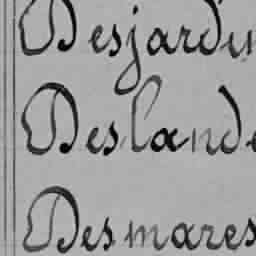 Desjardin
Deslande
Desmares